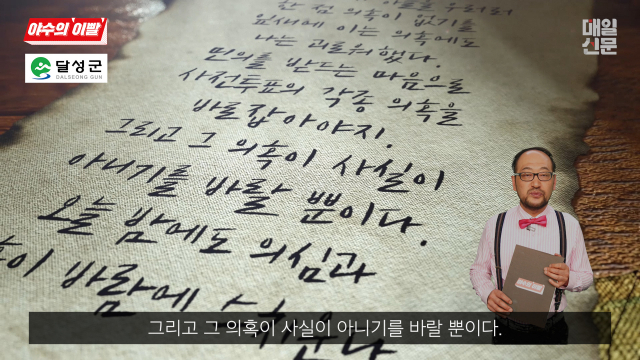 야수의 이빨
달성군
DALSEONG GUN
매일
신문
한 점 의혹이 없기를
요새에 이는 의혹에도
나는 괴로워했다.
민의를 받드는 마음으로
사전투표의 각종 의혹을
바로잡아야지.
그리고 그 의혹이 사실이
아니기를 바랄 뿐이다.
오늘 밤에도 의심과
바람에
그리고 그 의혹이 사실이 아니기를 바랄 뿐이다.